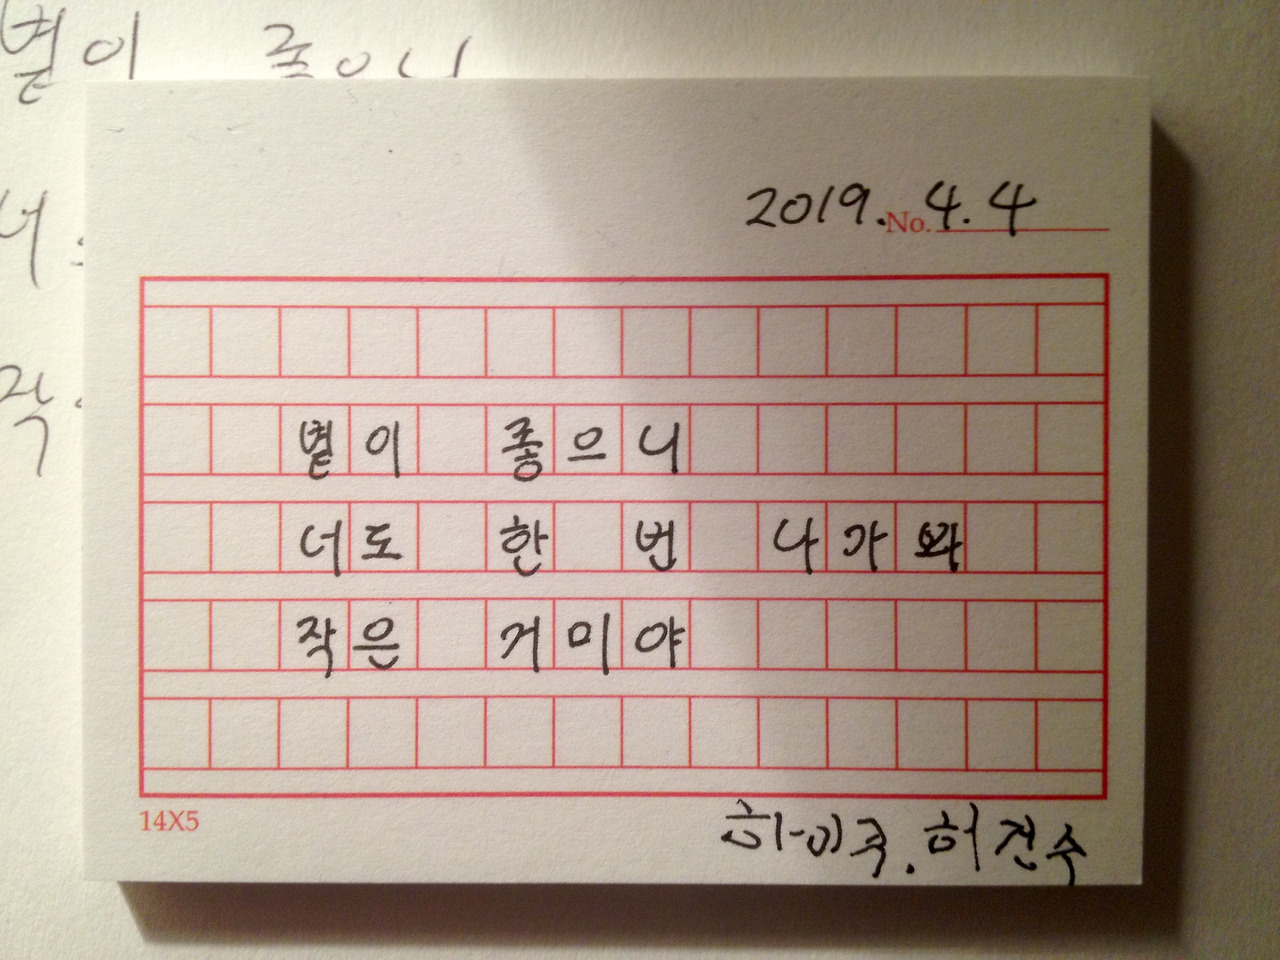 볕이 좋으니
너
작
2019. No. 4.4
볕이 좋으니
너도 한 번 나가 봐
작은 거미야
14X5
하이쿠. 허건수